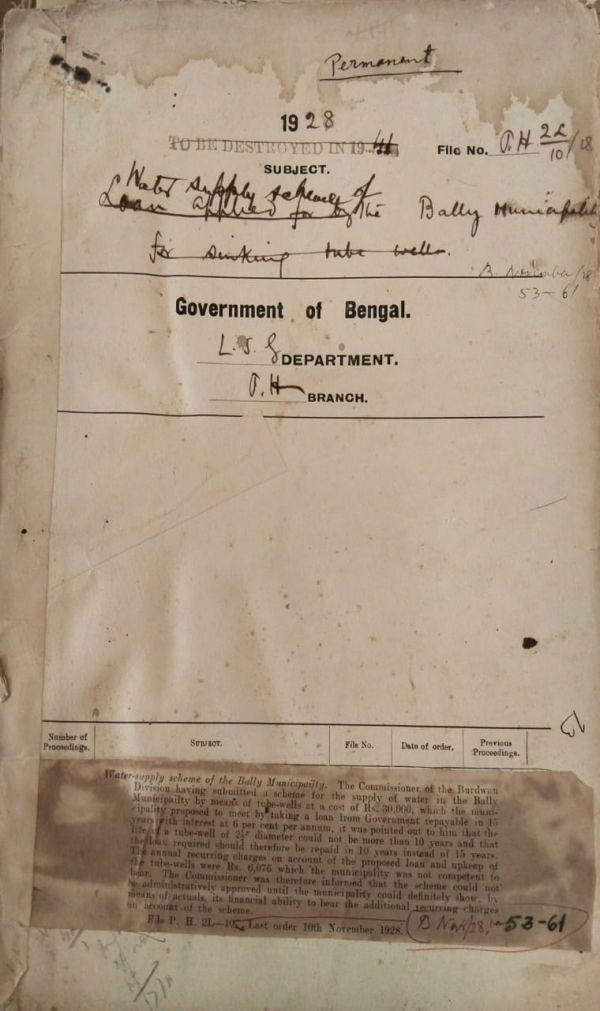 Permanent
1928
TO BE DESTROYED IN 19
File No. P.H 2L/10/28
SUBJECT.
Water supply scheme of
Loan applied for by the Bally Municipality
for sinking tube wells.
B. November/28
53-61
Government of Bengal.
L.S.G DEPARTMENT.
P.H BRANCH.
Number of Proceedings.
SUBJECT.
File No.
Date of order.
Previous Proceedings.
Water-supply scheme of the Bally Municipality. The Commissioner of the Burdwan
Division having submitted a scheme for the supply of water in the Bally
Municipality by means of tube-wells at a cost of Rs. 30,000, which the muni-
cipality proposed to meet by taking a loan from Government repayable in 15
years with interest at 6 per cent per annum, it was pointed out to him that the
life of a tube-well of 2½" diameter could not be more than 10 years and that
the loan required should therefore be repaid in 10 years instead of 15 years.
The annual recurring charges on account of the proposed loan and upkeep of
the tube-wells were Rs. 6,076 which the municipality was not competent to
bear. The Commissioner was therefore informed that the scheme could not
be administratively approved until the municipality could definitely show, by
means of actuals, its financial ability to bear the additional recurring charges
on account of the scheme.
File P. H. 2L—10. Last order 10th November 1928. B Nov/28, 53-61